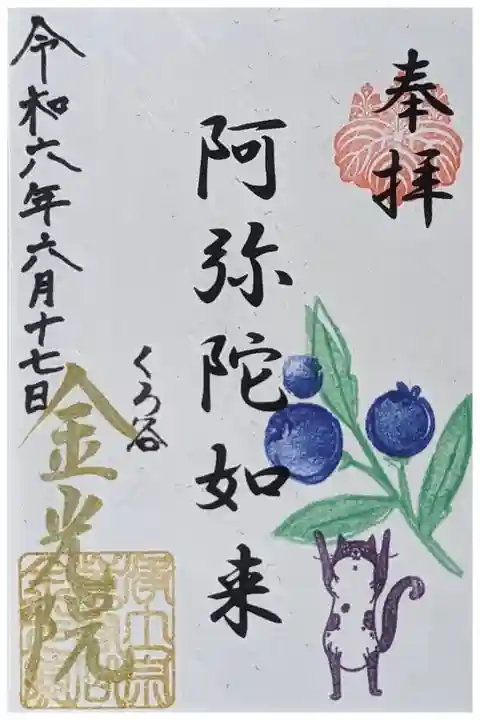 奉拝
阿弥陀如来
くろ谷
金光院
令和六年六月十七日